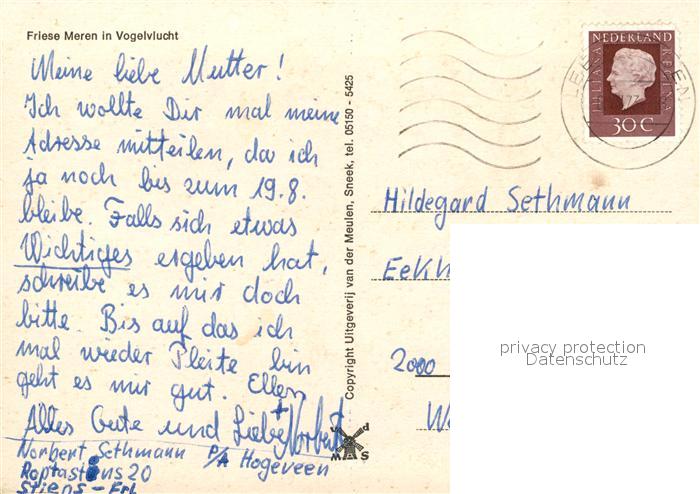 Friese Meren in Vogelvlucht
Meine liebe Mutter!
Ich wollte Dir mal meine
Adresse mitteilen, da ich
ja noch bis zum 19.8.
bleibe. Falls sich etwas
Wichtiges ergeben hat,
schreibe es mir doch
bitte. Bis auf das ich
mal wieder Pleite bin
geht es mir gut. Ellen
Alles Gute und Liebe + Norbert
Norbert Sethmann P/A Hogeveen
20
Stiens - Frl
Copyright Uitgeverij van der Meulen, Sneek, tel. 05150 - 5425
NEDERLAND
JULIANA REGINA
30 C
Hildegard Sethmann
2000
privacy protection
Datenschutz